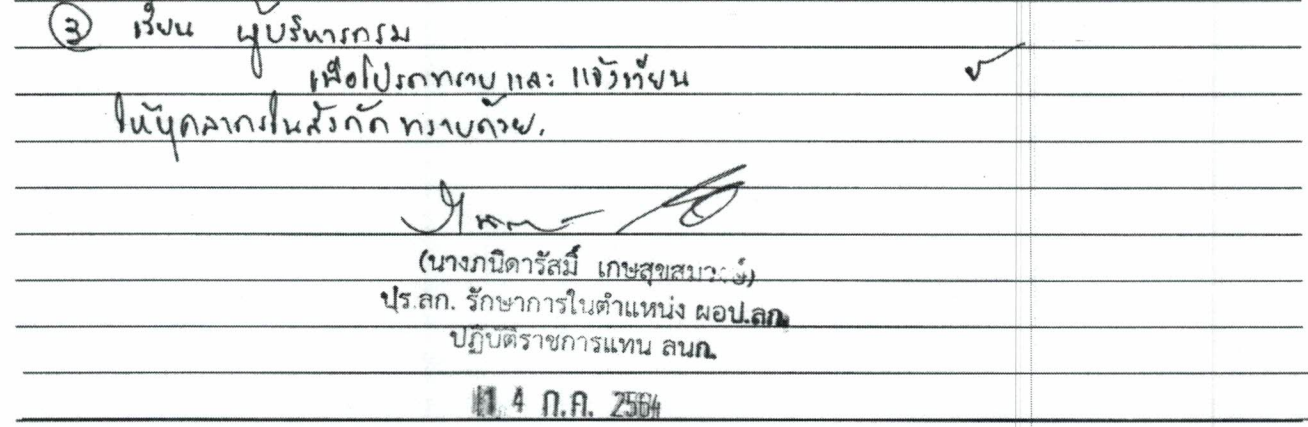 ③ เรียน ผู้บริหารกรม
เพื่อโปรดทราบ และ แจ้งเวียน
ให้บุคลากรในสังกัด ทราบด้วย.
(นางภนิดารัสมิ์ เกษสุขสมวงษ์)
ปร.ลก. รักษาการในตำแหน่ง ผอป.ลก.
ปฏิบัติราชการแทน ลนก.
14 ก.ค. 2564